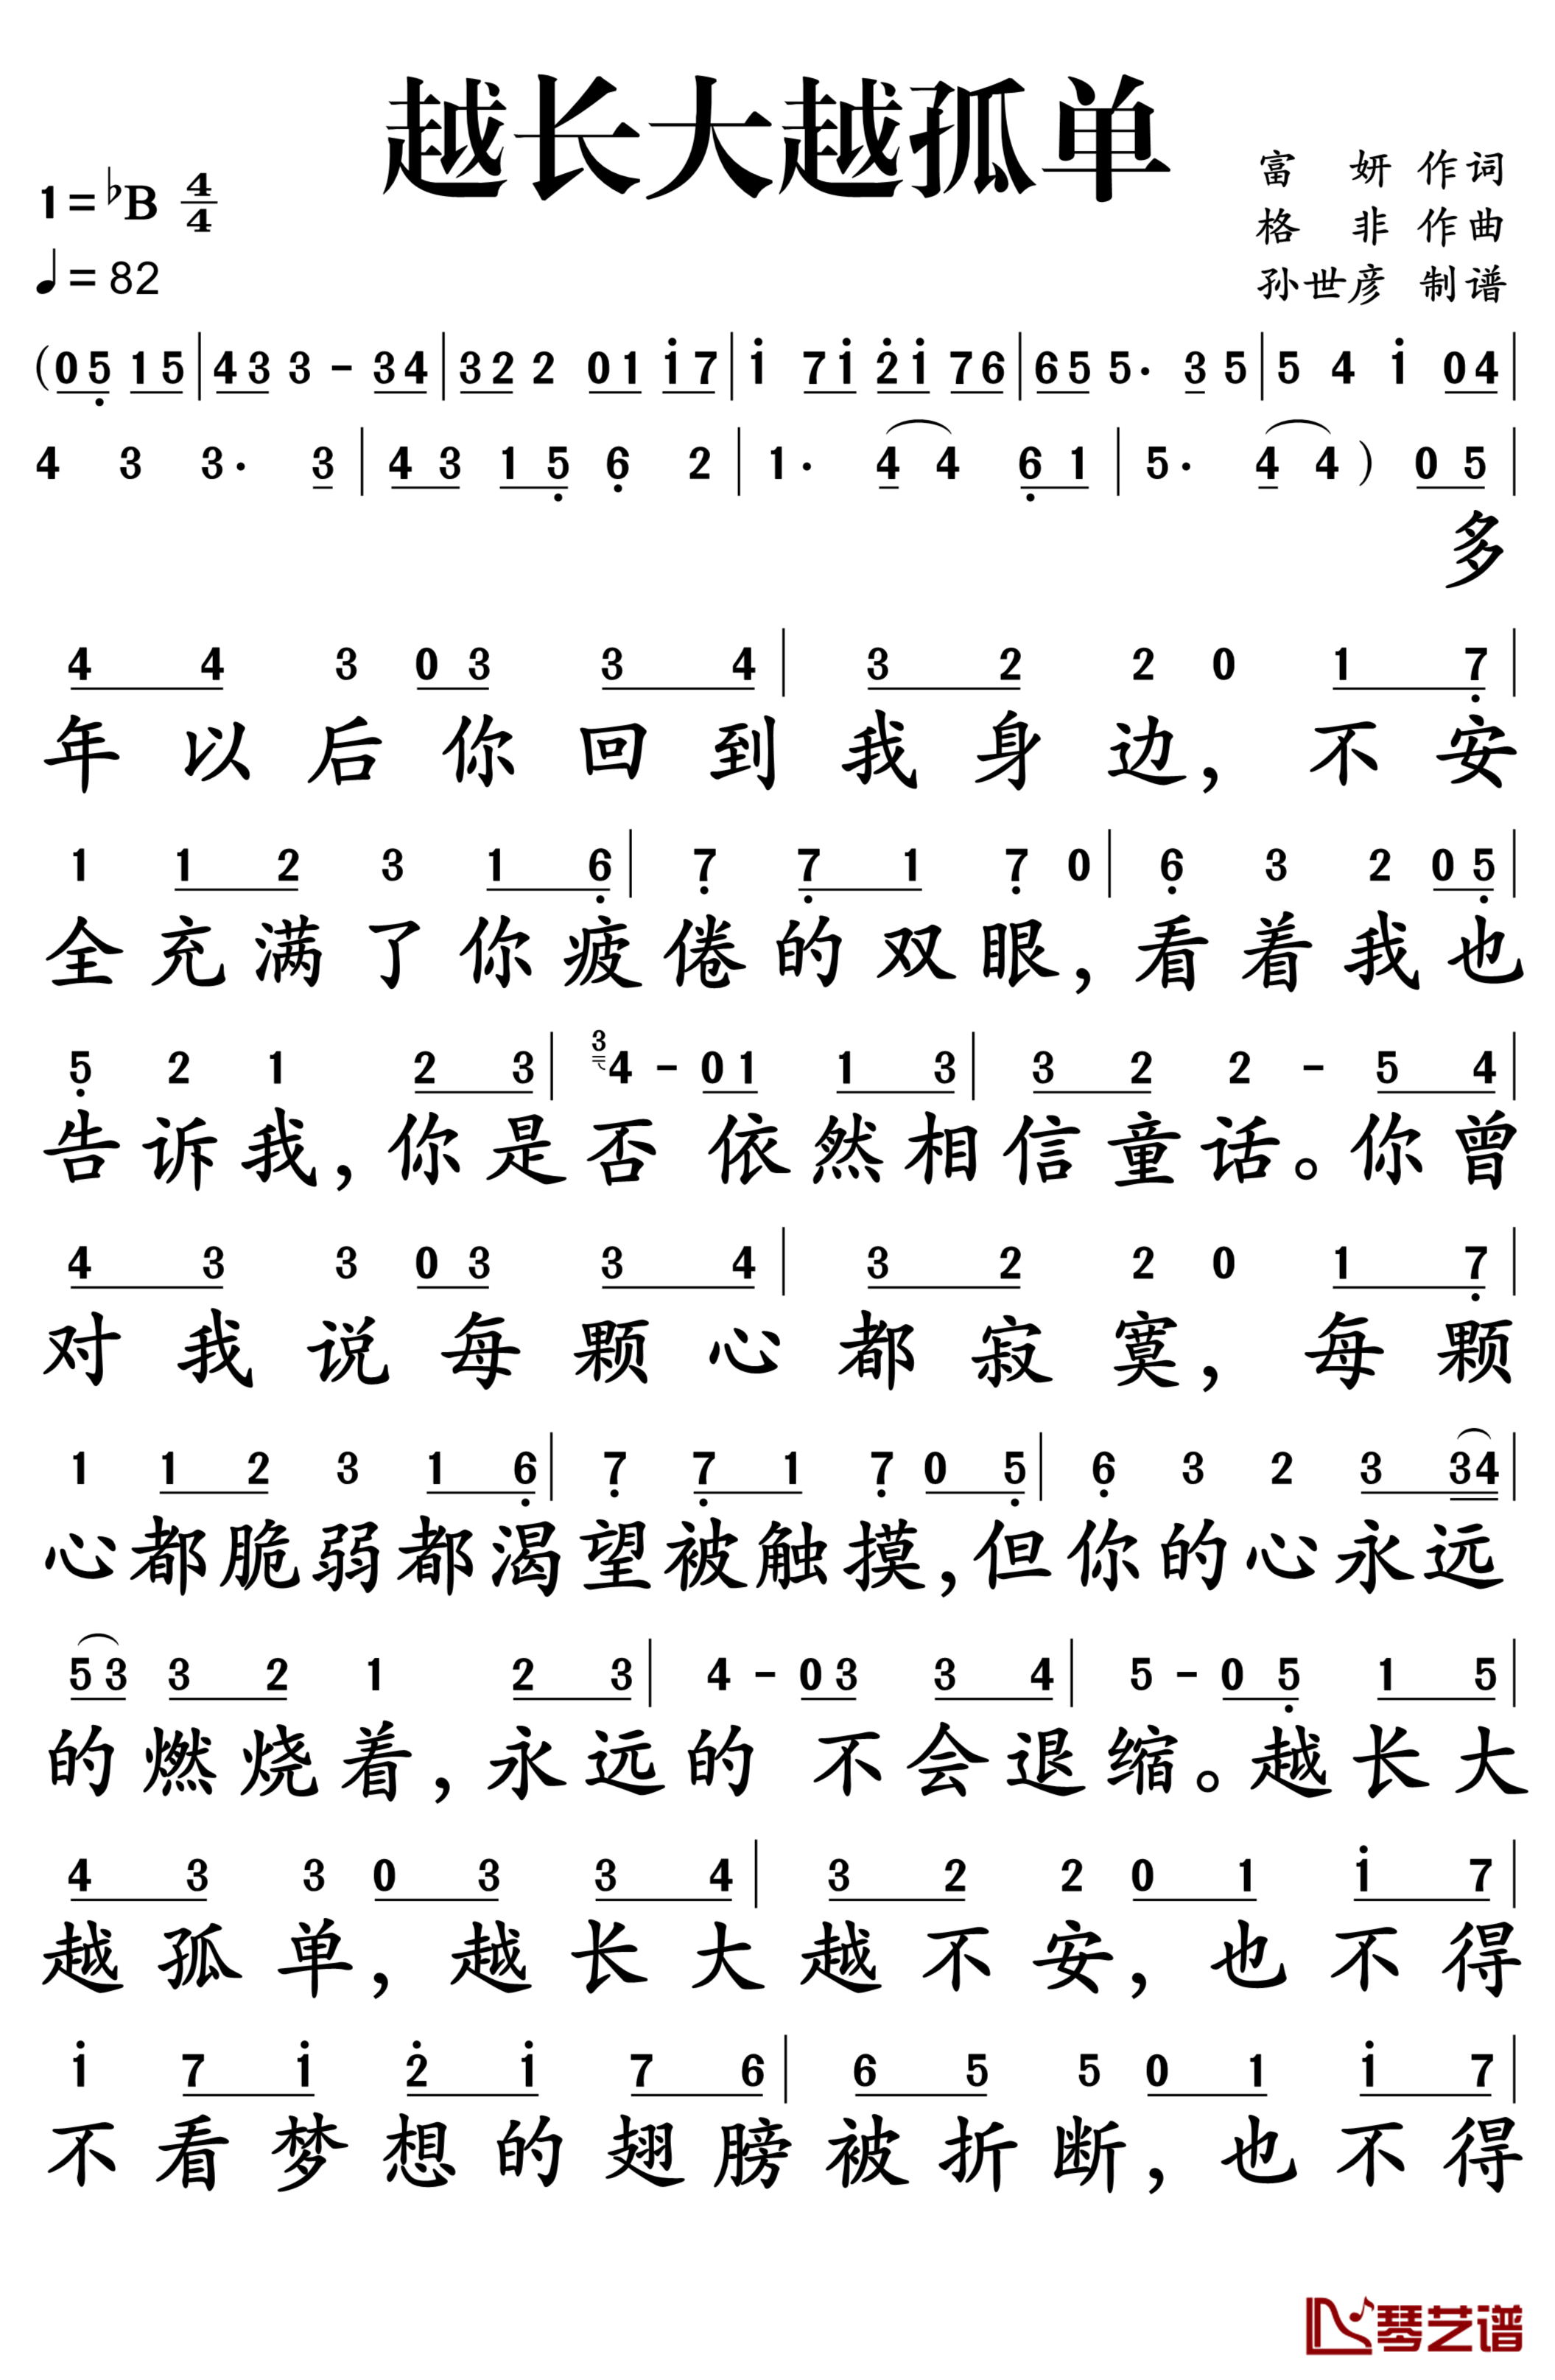 越长大越孤单
富 妍 作词
1=♭B 4/4
格 非 作曲
♩=82
孙世彦 制谱
(05 15|433-34|322 01 i7|i 7i 2̇i 76|655·35|5 4 i 04|
4 3 3· 3|43 15 6 2|1· 4 4 61|5· 4 4) 05|
多
4 4 3 0 3 3 4|3 2 2 0 1 7|
年以后你回到我身边,不安
1 1 2 3 1 6|7 7 1 7 0|6 3 2 0 5|
全充满了你疲倦的双眼,看着我也
5 2 1 2 3|3 4-01 1 3|3 2 2 - 5 4|
告诉我,你是否依然相信童话。你曾
4 3 3 0 3 3 4|3 2 2 0 1 7|
对我说每颗心都寂寞,每颗
1 1 2 3 1 6|7 7 1 7 0 5|6 3 2 3 34|
心都脆弱都渴望被触摸,但你的心永远
53 3 2 1 2 3|4-03 3 4|5-0 5 1 5|
的燃烧着,永远的不会退缩。越长大
4 3 3 0 3 3 4|3 2 2 0 1 i 7|
越孤单,越长大越不安,也不得
i 7 i 2̇ i 7 6|6 5 5 0 1 i 7|
不看梦想的翅膀被折断,也不得
琴艺谱